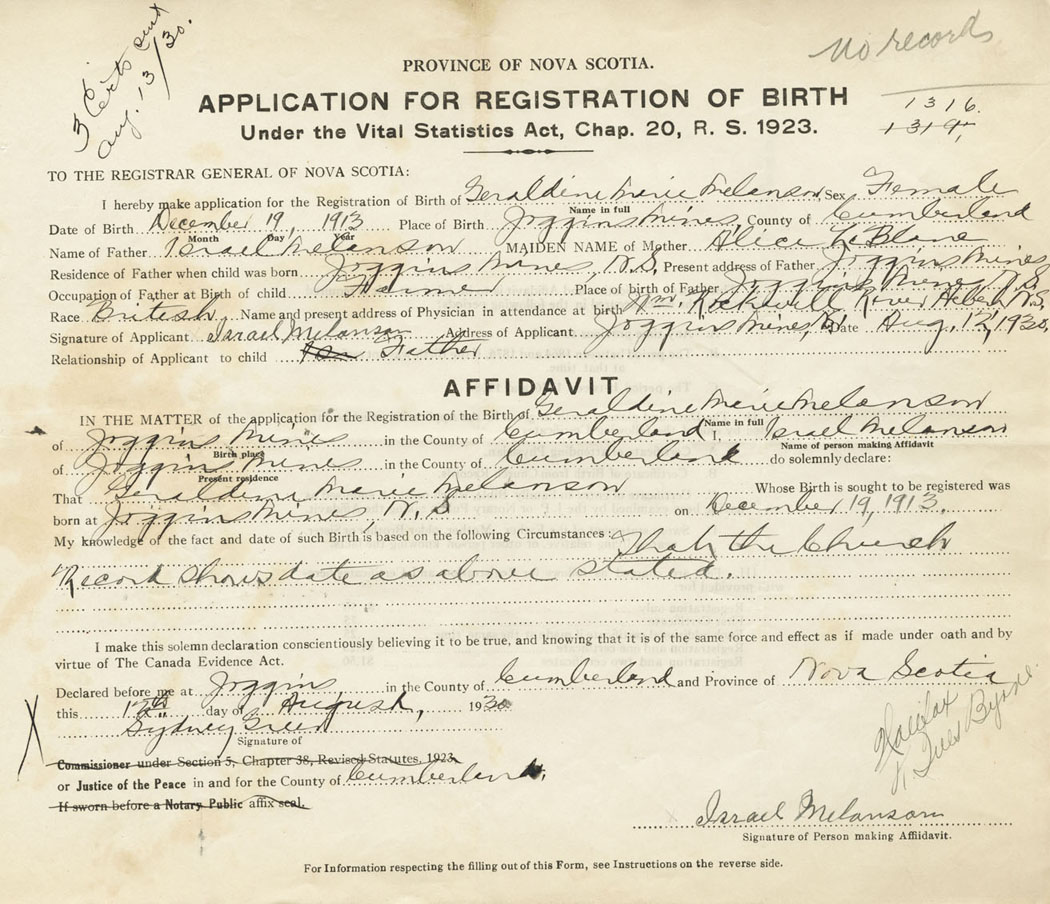 3 Certs sent
Aug. 13/30.
No records
PROVINCE OF NOVA SCOTIA.
APPLICATION FOR REGISTRATION OF BIRTH
1316.
Under the Vital Statistics Act, Chap. 20, R. S. 1923.
TO THE REGISTRAR GENERAL OF NOVA SCOTIA:
I hereby make application for the Registration of Birth of Geraldine Marie Melanson Sex Female
Name in full
Date of Birth December 19, 1913 Place of Birth Joggins Mines, County of Cumberland
Month Day Year
Name of Father Israel Melanson MAIDEN NAME of Mother Alice LeBlanc
Residence of Father when child was born Joggins Mines, N.S. Present address of Father Joggins Mines
Occupation of Father at Birth of child Farmer Place of birth of Father Joggins Mines N.S.
Race British Name and present address of Physician in attendance at birth Wm. Rockwell River Hebert N.S.
Signature of Applicant Israel Melanson Address of Applicant Joggins Mines, Date Aug. 12, 1930.
Relationship of Applicant to child Father
AFFIDAVIT
IN THE MATTER of the application for the Registration of the Birth of Geraldine Marie Melanson
Name in full
of Joggins Mines in the County of Cumberland I, Israel Melanson
Birth place Name of person making Affidavit
of Joggins Mines in the County of Cumberland do solemnly declare:
Present residence
That Geraldine Marie Melanson Whose Birth is sought to be registered was
born at Joggins Mines, N.S on December 19, 1913.
My knowledge of the fact and date of such Birth is based on the following Circumstances: That the Church
Record shows date as above stated.
I make this solemn declaration conscientiously believing it to be true, and knowing that it is of the same force and effect as if made under oath and by
virtue of The Canada Evidence Act.
Declared before me at Joggins, in the County of Cumberland and Province of Nova Scotia
this 12th day of August, 1930
Sydney Green
Signature of
Commissioner under Section 5, Chapter 38, Revised Statutes, 1923
or Justice of the Peace in and for the County of Cumberland.
If sworn before a Notary Public affix seal.
Halifax
Byrne
Israel Melanson
Signature of Person making Affidavit.
For Information respecting the filling out of this Form, see Instructions on the reverse side.